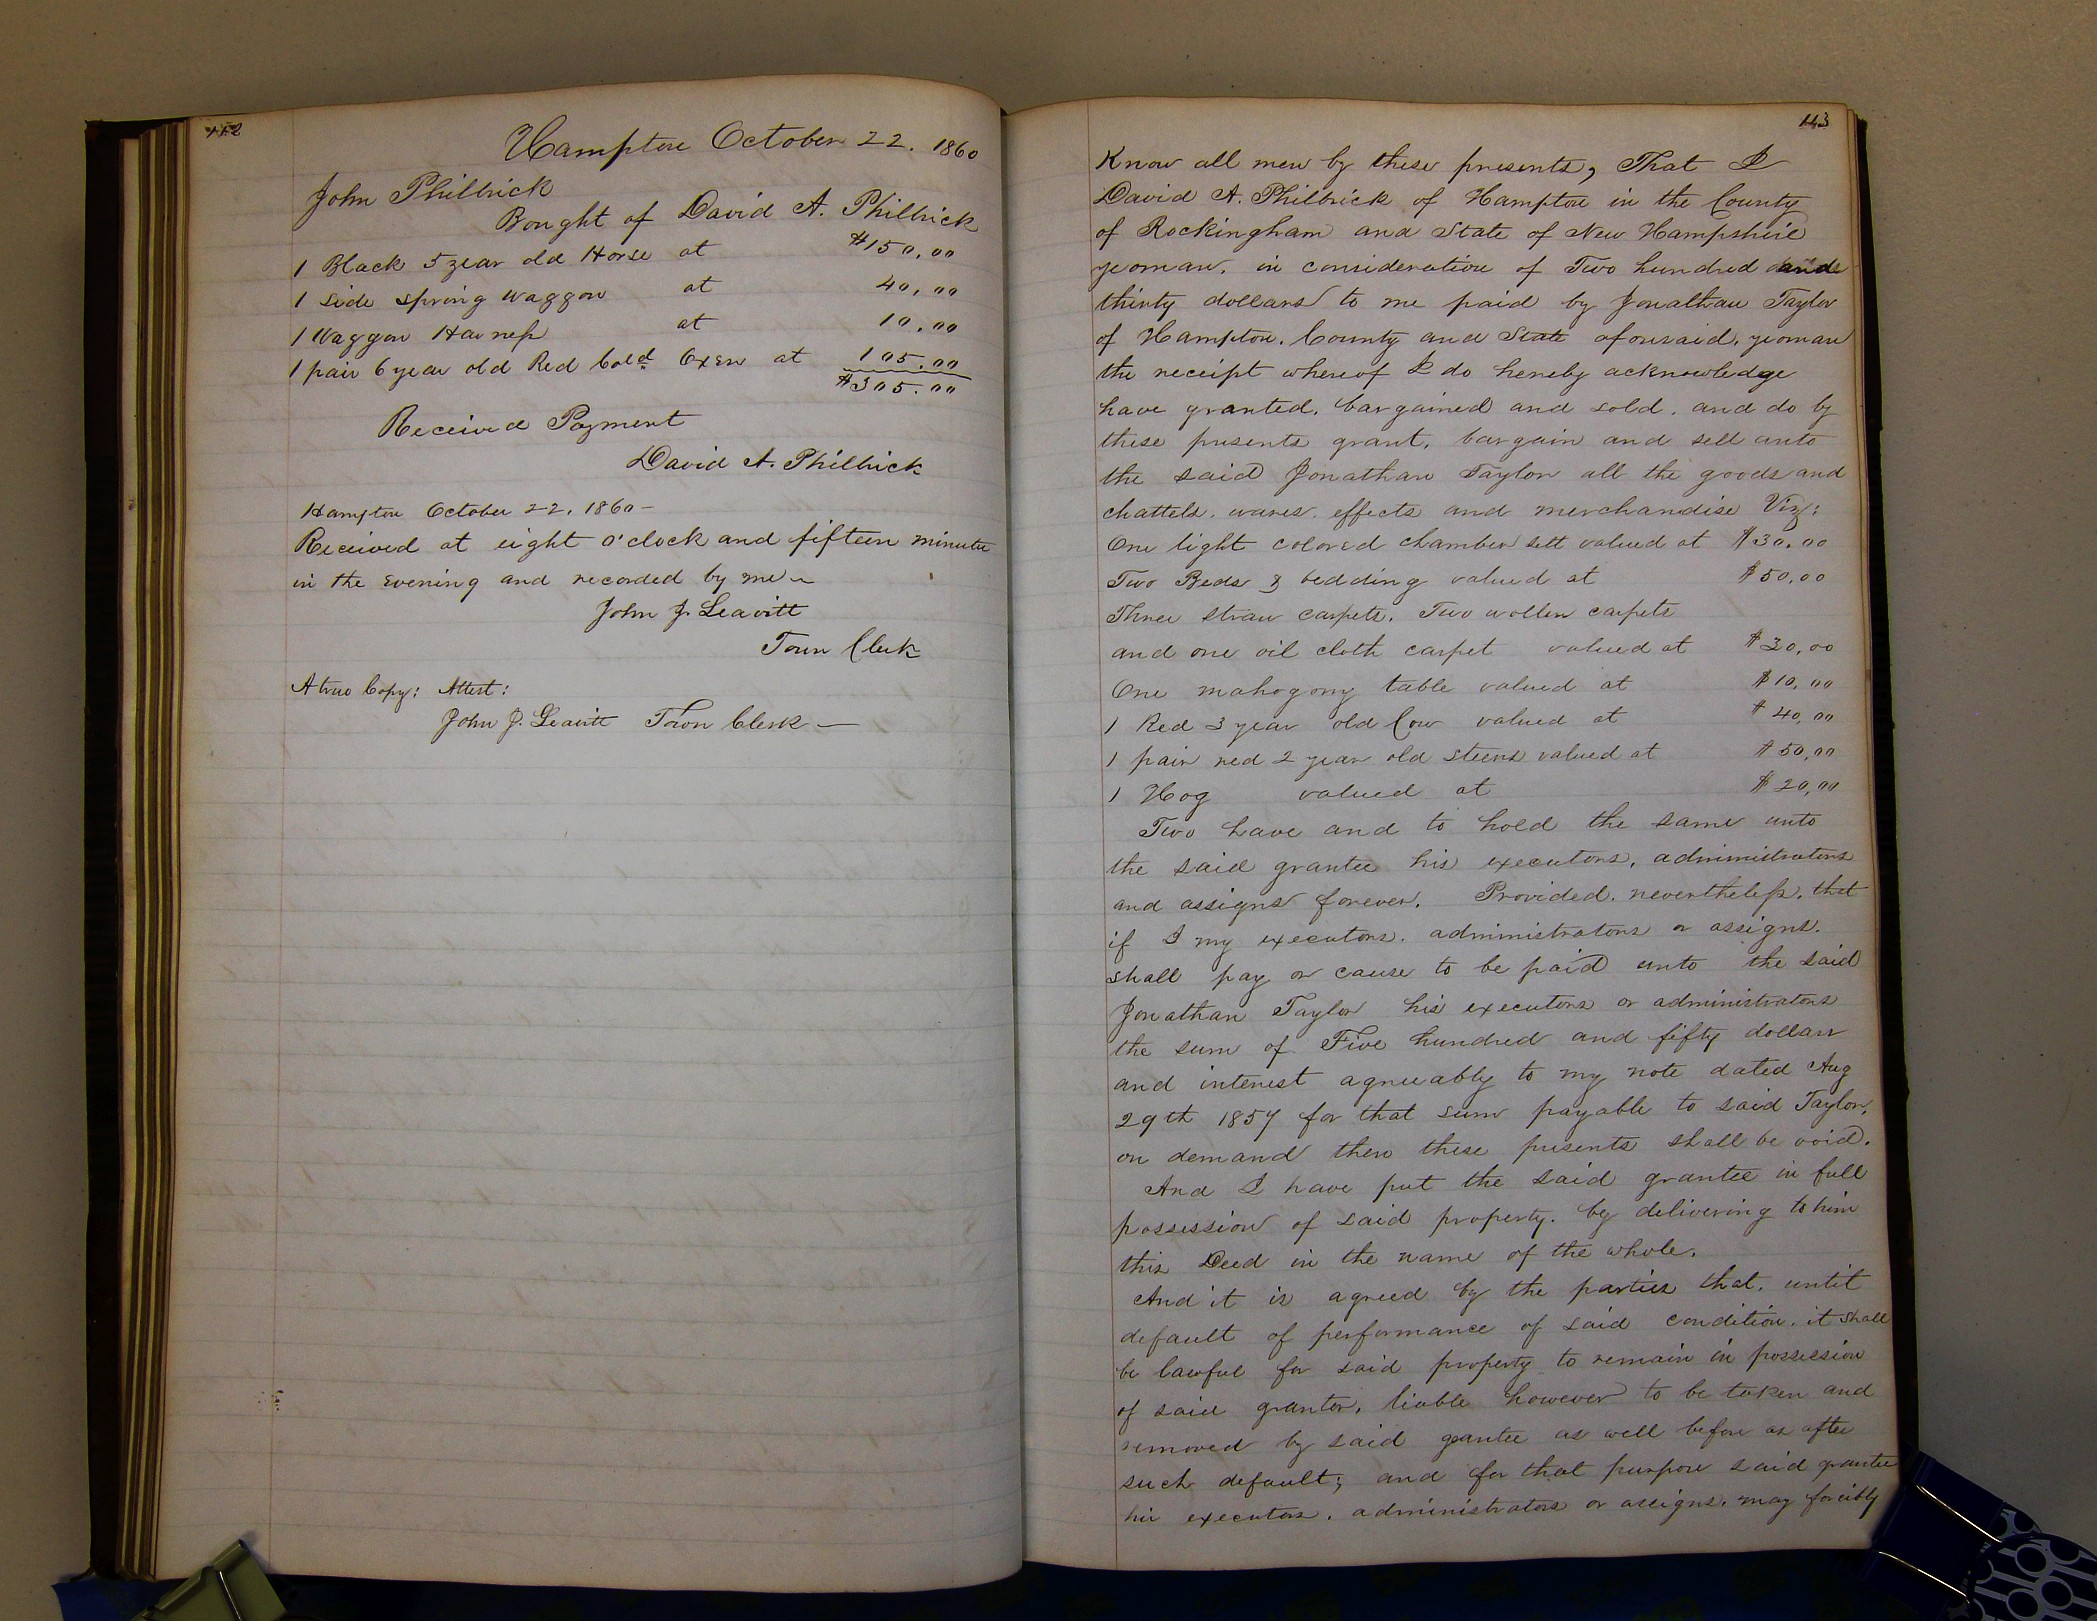 112
Hampton October 22. 1860
John Philbrick
Bought of David A. Philbrick
1 Black 5 year old Horse at $150.00
1 side spring waggon at 40,00
1 Waggon Harness at 10.00
1 pair 6 year old Red Cold. Oxen at 105.00
$305.00
Received Payment
David A. Philbrick
Hampton October 22, 1860-
Received at eight o'clock and fifteen minutes
in the evening and recorded by me
John J. Leavitt
Town Clerk
A true Copy: Attest:
John J. Leavitt Town Clerk
143
Know all men by these presents, That I
David A. Philbrick of Hampton in the County
of Rockingham and State of New Hampshire
yeoman, in consideration of Two hundred and
thirty dollars to me paid by Jonathan Taylor
of Hampton. County and State aforesaid, yeoman
the receipt whereof I do hereby acknowledge
have granted, bargained and sold, and do by
these presents grant, bargain and sell unto
the said Jonathan Taylor all the goods and
chattels, wares, effects and merchandise Viz:
One light colored chamber sett valued at $30.00
Two Beds & bedding valued at $50.00
Three straw carpets, Two wollen carpets
and one oil cloth carpet valued at $30,00
One mahogony table valued at $10,00
1 Red 3 year old Cow valued at $40,00
1 pair red 2 year old steers valued at $50,00
1 Hog valued at $20,00
Two have and to hold the same unto
the said grantee his executors, administrators
and assigns forever. Provided, nevertheless, that
if I my executors, administrators or assigns.
shall pay or cause to be paid unto the said
Jonathan Taylor his executors or administrators
the sum of Five hundred and fifty dollars
and interest agreeably to my note dated Aug
29th 1857 for that sum payable to said Taylor,
on demand then these presents shall be void.
And I have put the said grantee in full
possession of said property, by delivering to him
this Deed in the name of the whole.
And it is agreed by the parties that, until
default of performance of said condition, it shall
be lawful for said property to remain in possession
of said grantor, liable however to be taken and
removed by said grantee as well before as after
such default; and for that purpose said grantee
his executors, administrators or assigns, may forcibly